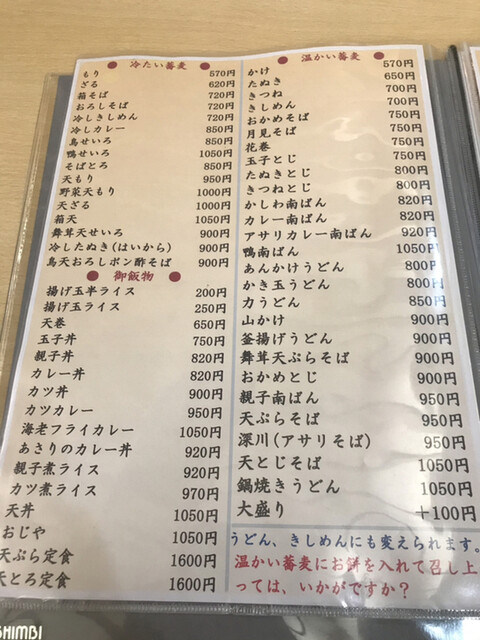 ● 冷たい蕎麦 ●
もり 570円
ざる 620円
箱そば 720円
おろしそば 720円
冷しきしめん 720円
冷しカレー 850円
鳥せいろ 850円
鴨せいろ 1050円
そばとろ 850円
天もり 950円
野菜天もり 1000円
天ざる 1000円
箱天 1050円
舞茸天せいろ 900円
冷したぬき(はいから) 900円
鳥天おろしポン酢そば 900円
● 御飯物 ●
揚げ玉半ライス 200円
揚げ玉ライス 250円
天巻 650円
玉子丼 750円
親子丼 820円
カレー丼 820円
カツ丼 900円
カツカレー 950円
海老フライカレー 1050円
あさりのカレー丼 920円
親子煮ライス 920円
カツ煮ライス 970円
天丼 1050円
おじや 1050円
天ぷら定食 1600円
天とろ定食 1600円
● 温かい蕎麦 ●
かけ 570円
たぬき 650円
きつね 700円
きしめん 700円
おかめそば 750円
月見そば 750円
花巻 750円
玉子とじ 750円
たぬきとじ 800円
きつねとじ 800円
かしわ南ばん 820円
カレー南ばん 820円
アサリカレー南ばん 920円
鴨南ばん 1050円
あんかけうどん 800円
かき玉うどん 800円
力うどん 850円
山かけ 900円
釜揚げうどん 900円
舞茸天ぷらそば 900円
おかめとじ 900円
親子南ばん 950円
天ぷらそば 950円
深川(アサリそば) 950円
天とじそば 1050円
鍋焼きうどん 1050円
大盛り +100円
うどん、きしめんにも変えられます。
温かい蕎麦にお餅を入れて召し上
っては、いかがですか?
SHIMBI